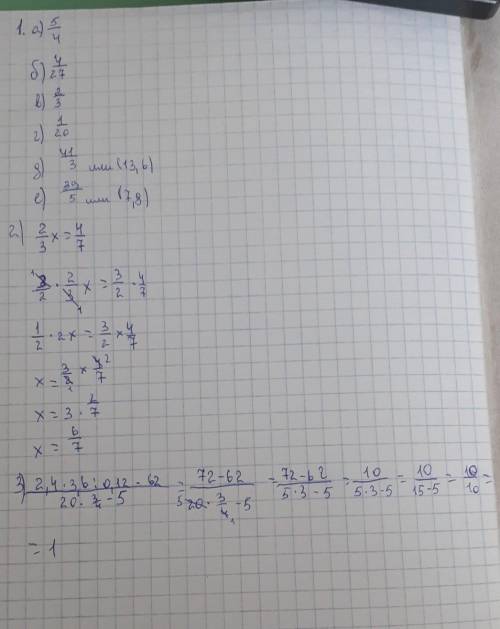 1. а) 5/4
б) 4/27
в) 2/3
г) 1/20
д) 41/3 или (13,6)
е) 39/5 или (7,8)
2) 2/3 x = 4/7
3/2 · 2/3 x = 3/2 · 4/7
1/2 · 2x = 3/2 × 4/7
x = 3/2 × 4/7
x = 3 · 2/7
x = 6/7
3) (2,4 · 3,6 : 0,12 - 62)/(20 · 3/4 - 5) = (72-62)/(20 · 3/4 - 5) = (72-62)/(5·3-5) = 10/(5·3-5) = 10/(15-5) = 10/10 =
= 1